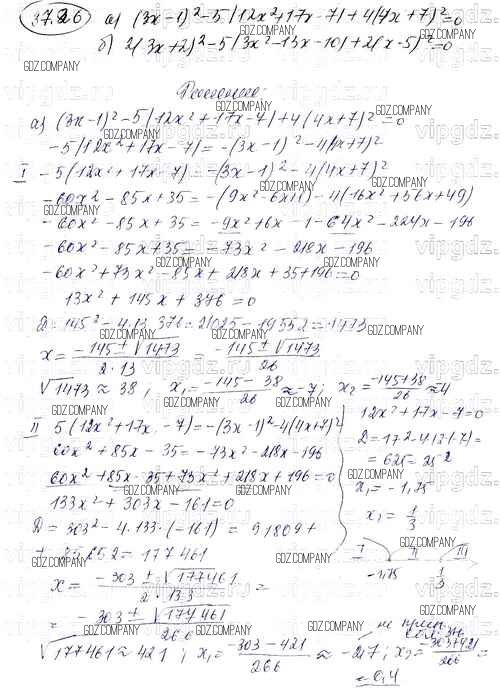 37.26 а) (3x-1)² - 5|12x²+17x-7| + 4(4x+7)² = 0
б) 2(3x+2)² - 5|3x²-13x-10| + 2(x-5)² = 0
Решение:
а) (3x-1)² - 5|12x²+17x-7| + 4(4x+7)² = 0
-5|12x²+17x-7| = -(3x-1)² - 4(4x+7)²
I -5(12x²+17x-7) = -(3x-1)² - 4(4x+7)²
-60x² - 85x + 35 = -(9x²-6x+1) - 4(16x²+56x+49)
-60x² - 85x + 35 = -9x² + 6x - 1 - 64x² - 224x - 196
-60x² - 85x + 35 = -73x² - 218x - 196
-60x² + 73x² - 85x + 218x + 35 + 196 = 0
13x² + 145x + 376 = 0
D = 145² - 4·13·376 = 21025 - 19552 = 1473
x = (-145 ± √1473)/(2·13) = (-145 ± √1473)/26
√1473 ≈ 38; x₁ = (-145-38)/26 ≈ -7; x₂ = (-145+38)/26 ≈ 4
II 5(12x²+17x-7) = -(3x-1)² - 4(4x+7)²
60x² + 85x - 35 = -73x² - 218x - 196
60x² + 85x - 35 + 73x² + 218x + 196 = 0
133x² + 303x - 161 = 0
D = 303² - 4·133·(-161) = 91809 +
+ 85652 = 177461
x = (-303 ± √177461)/(2·133) =
= (-303 ± √177461)/266
√177461 ≈ 421; x₁ = (-303-421)/266 ≈ -2,7; x₂ = (-303+421)/266 =
= 0,4
12x² + 17x - 7 = 0
D = 17² - 4·12·(-7) =
= 625 = 25²
x₁ = -1,75
x₂ = 1/3
I II III
-1,75 1/3
GDZ.COMPANY
vipgdz.com